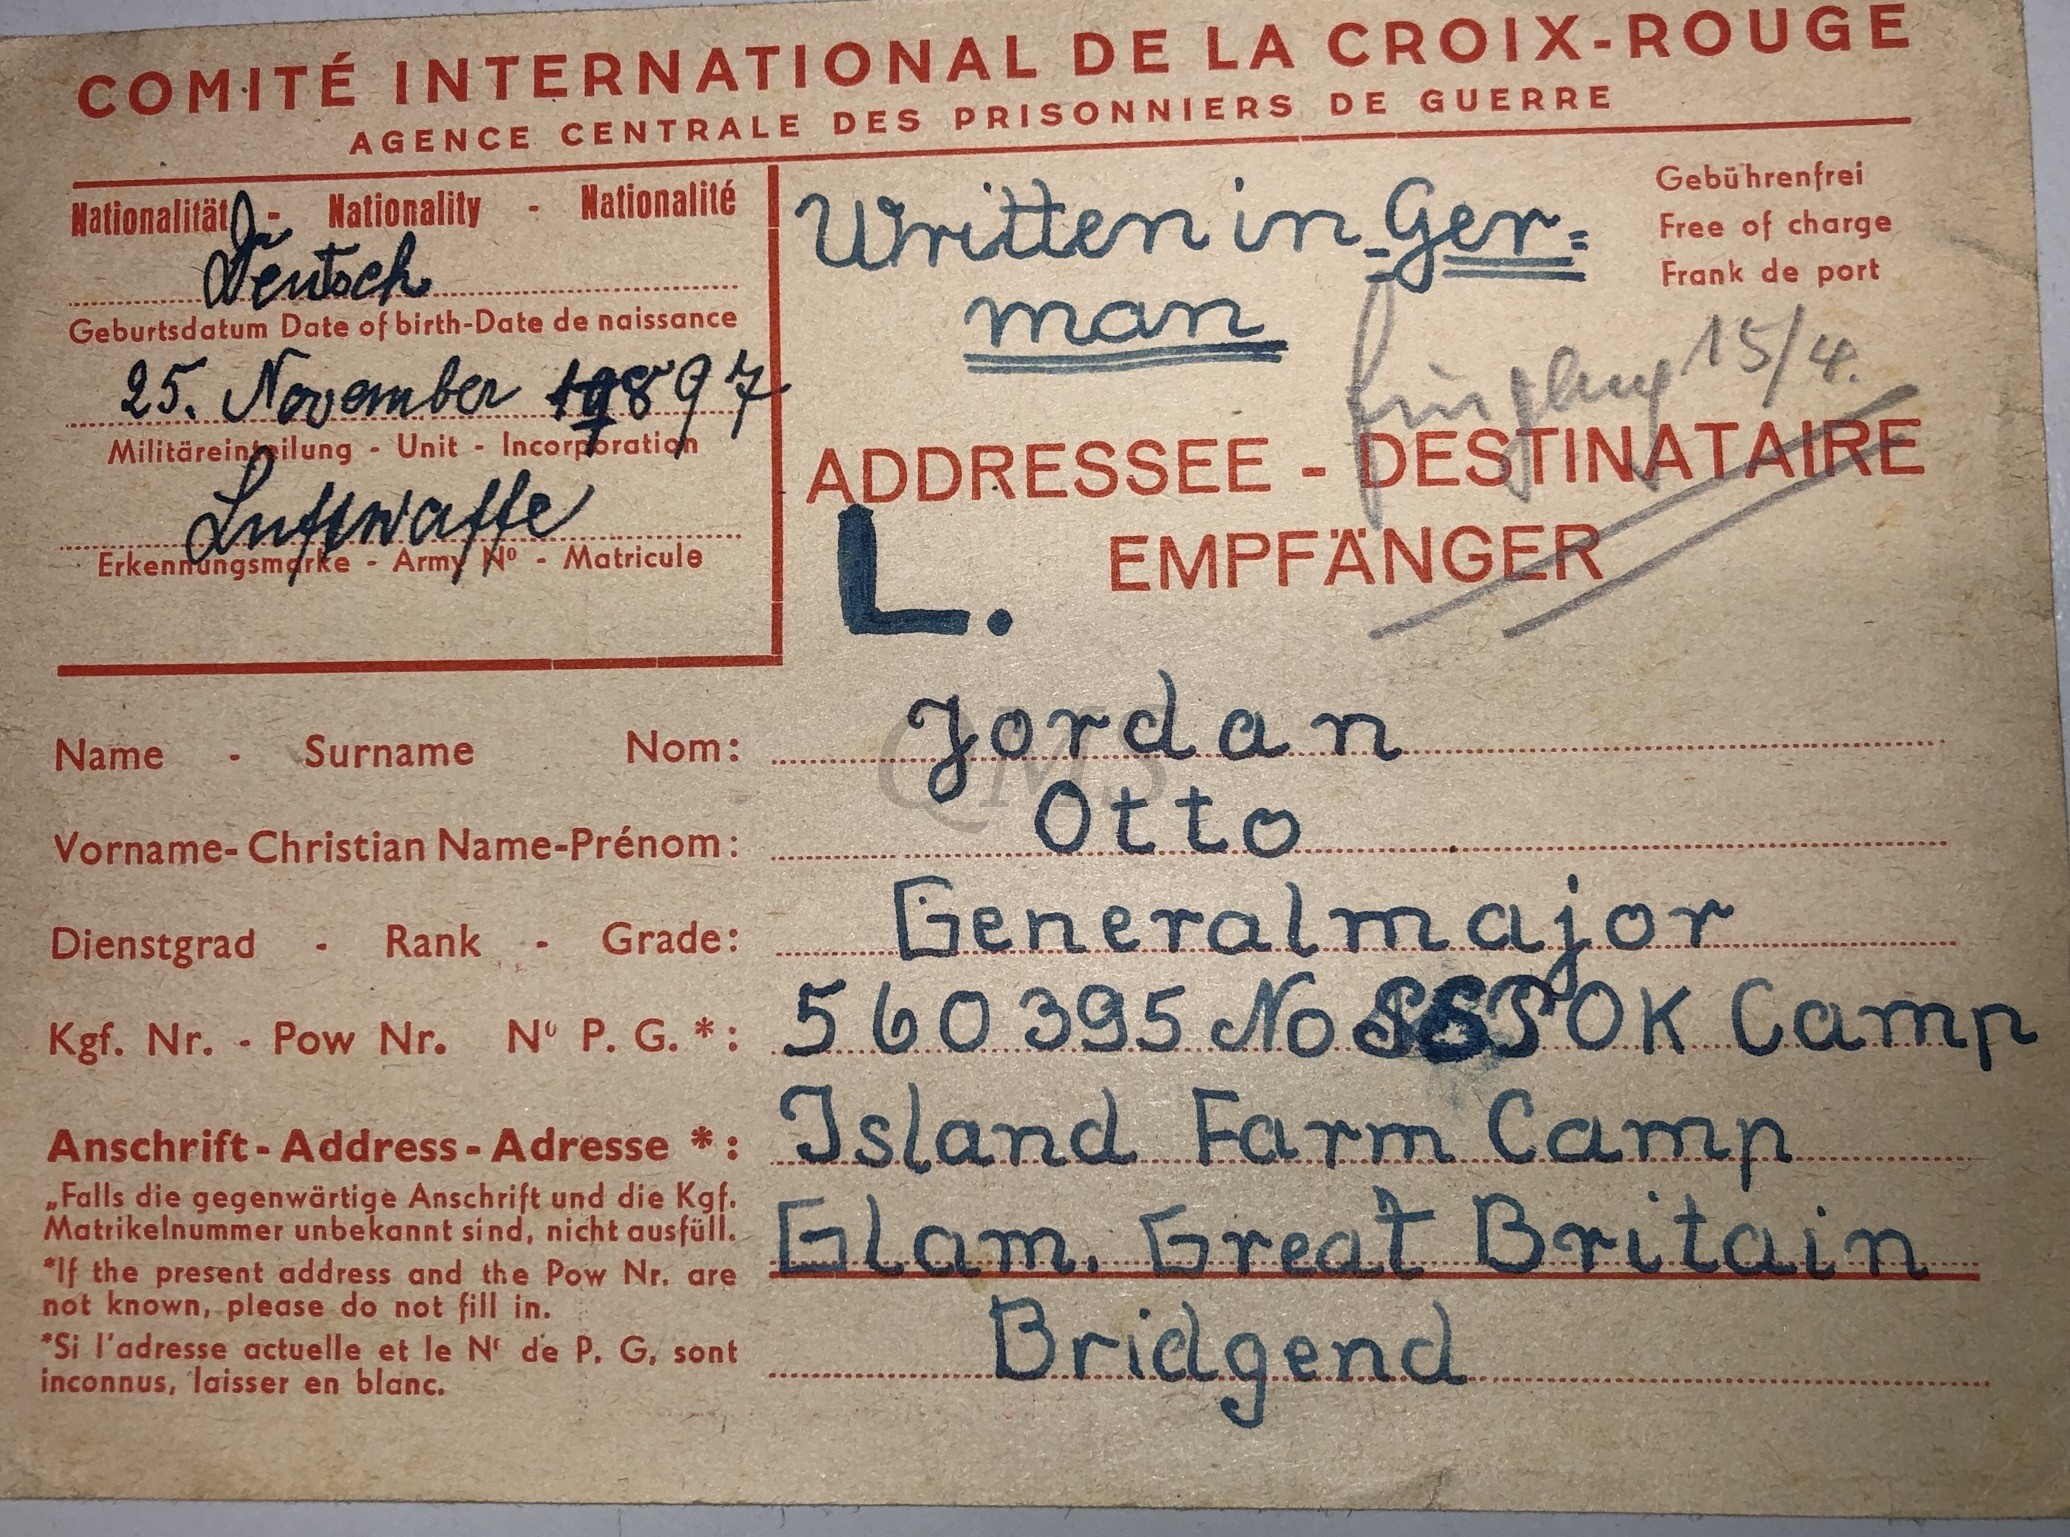 COMITÉ INTERNATIONAL DE LA CROIX-ROUGE
AGENCE CENTRALE DES PRISONNIERS DE GUERRE
Nationalität - Nationality - Nationalité
Deutsch
Geburtsdatum Date of birth-Date de naissance
25. November 1897
Militäreinteilung - Unit - Incorporation
Luftwaffe
Erkennungsmarke - Army Nº - Matricule
Written in Ger-
man
Gebührenfrei
Free of charge
Frank de port
15/4.
ADDRESSEE - DESTINATAIRE
EMPFÄNGER
L.
Name - Surname Nom: Jordan
Vorname- Christian Name-Prénom: Otto
Dienstgrad - Rank - Grade: Generalmajor
Kgf. Nr. - Pow Nr. Nº P. G. *: 560395 No OK Camp
Anschrift - Address - Adresse *: Island Farm Camp
Glam. Great Britain
Bridgend
„Falls die gegenwärtige Anschrift und die Kgf.
Matrikelnummer unbekannt sind, nicht ausfüll.
*If the present address and the Pow Nr. are
not known, please do not fill in.
*Si l'adresse actuelle et le Nr de P. G, sont
inconnus, laisser en blanc.
CMS